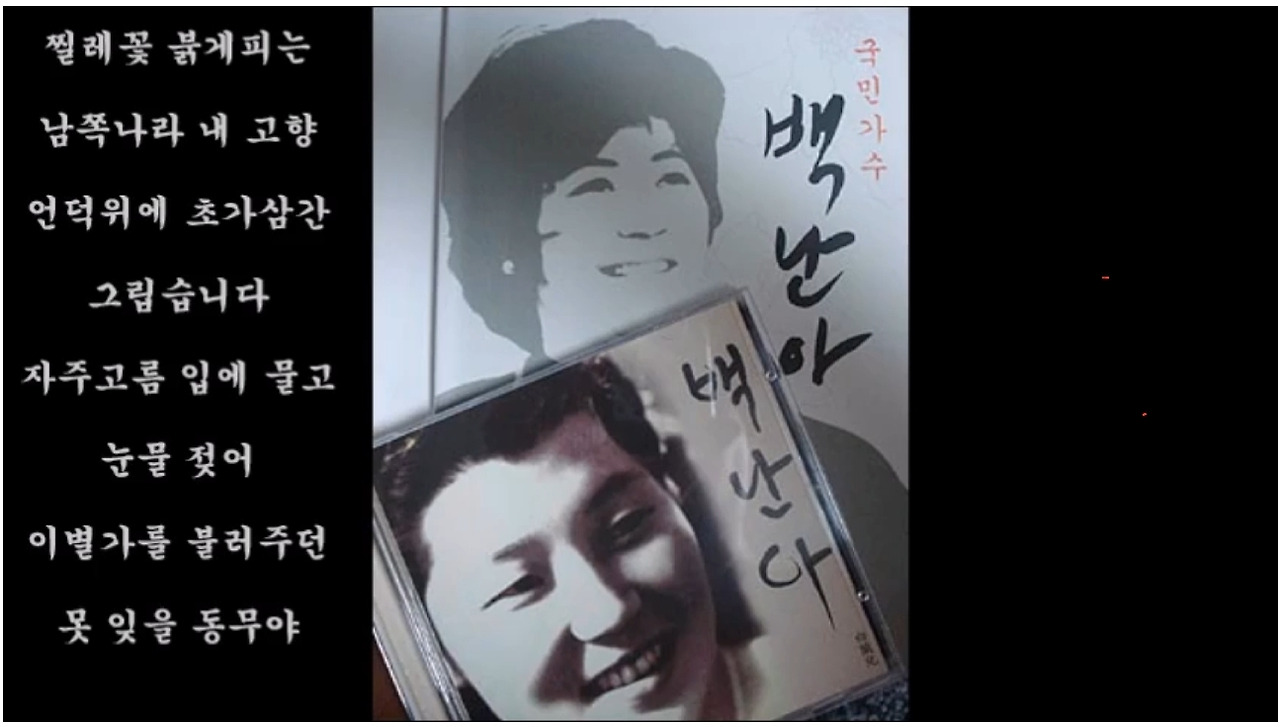 찔레꽃 붉게피는
남쪽나라 내 고향
언덕위에 초가삼간
그립습니다
자주고름 입에 물고
눈물 젖어
이별가를 불러주던
못 잊을 동무야
국민가수
백난아
백난아